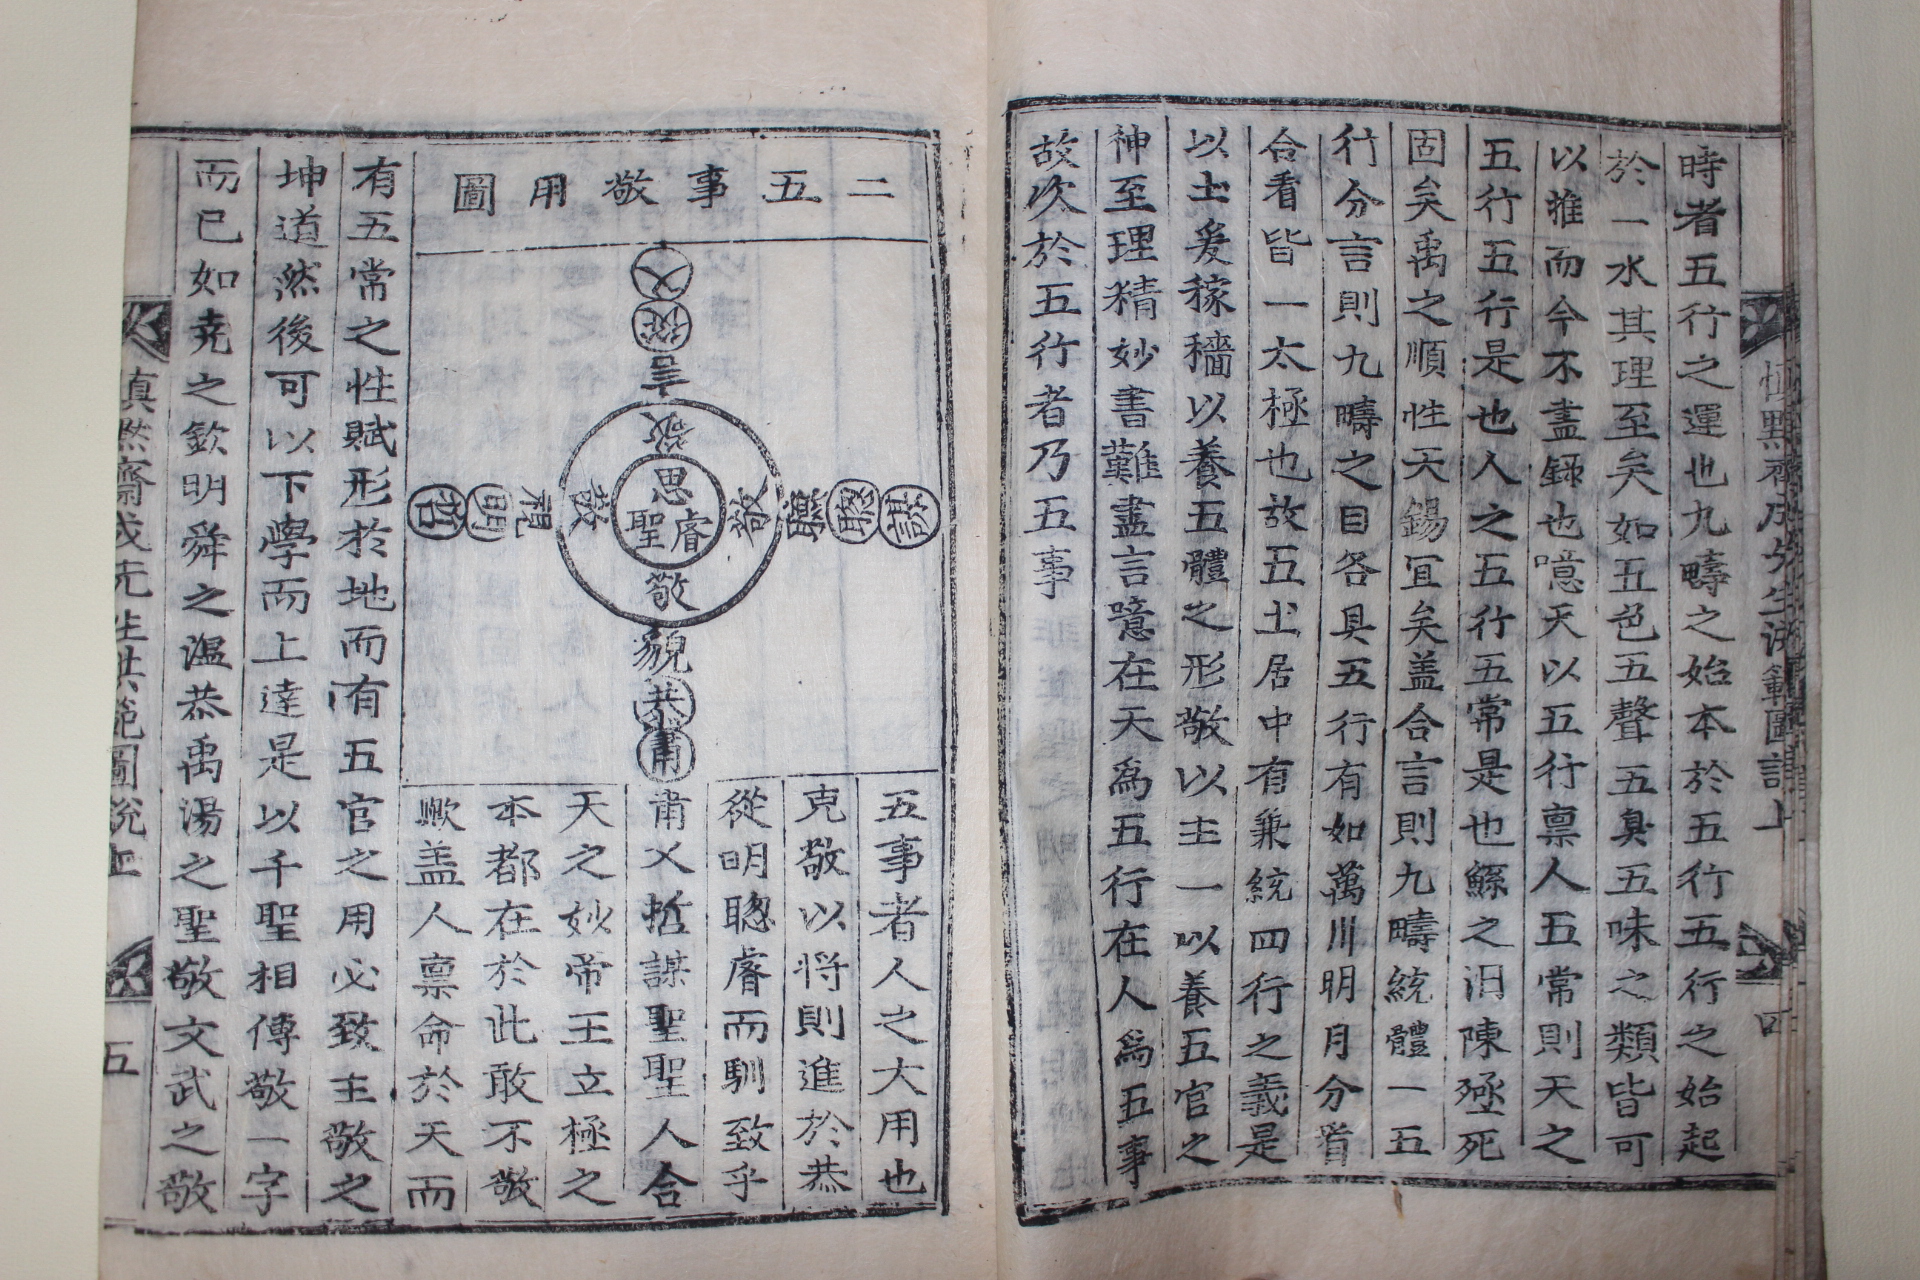 時者五行之運也九疇之始本於五行五行之始起
於一水其理至矣如五色五聲五臭五味之類皆可
以推而今不盡錄也噫天以五行禀人五常則天之
五行五行是也人之五行五常是也鯀之汨陳殛死
固矣禹之順性天錫宜矣盖合言則九疇統體一五
行分言則九疇之目各具五行有如萬川明月分看
合看皆一太極也故五土居中有兼統四行之義是
以土爰稼穡以養五體之形敬以主一以養五官之
神至理精妙書難盡言噫在天爲五行在人爲五事
故次於五行者乃五事
愼默齋成先生洪範圖說上
四
二五事敬用圖
乂
從
言
敬
思
睿
聖
敬
聽
聰
謀
敬
視
明
哲
敬
貌
恭
肅
五事者人之大用也
克敬以將則進於恭
從明聰睿而馴致乎
肅乂哲謀聖聖人合
天之妙帝王立極之
本都在於此敢不敬
歟盖人禀命於天而
有五常之性賦形於地而有五官之用必致主敬之
坤道然後可以下學而上達是以千聖相傳敬一字
而已如堯之欽明舜之溫恭禹湯之聖敬文武之敬
愼默齋成先生洪範圖說上
五